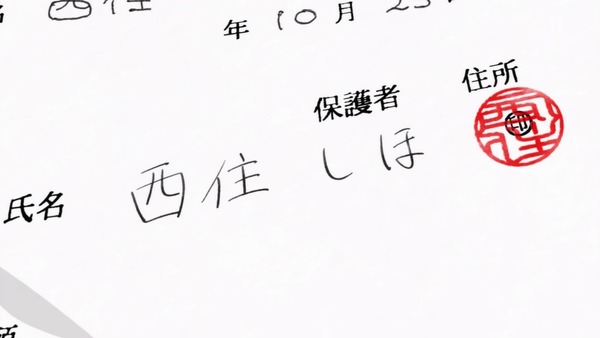 西住
年10月
保護者 住所
氏名 西住 しほ 印